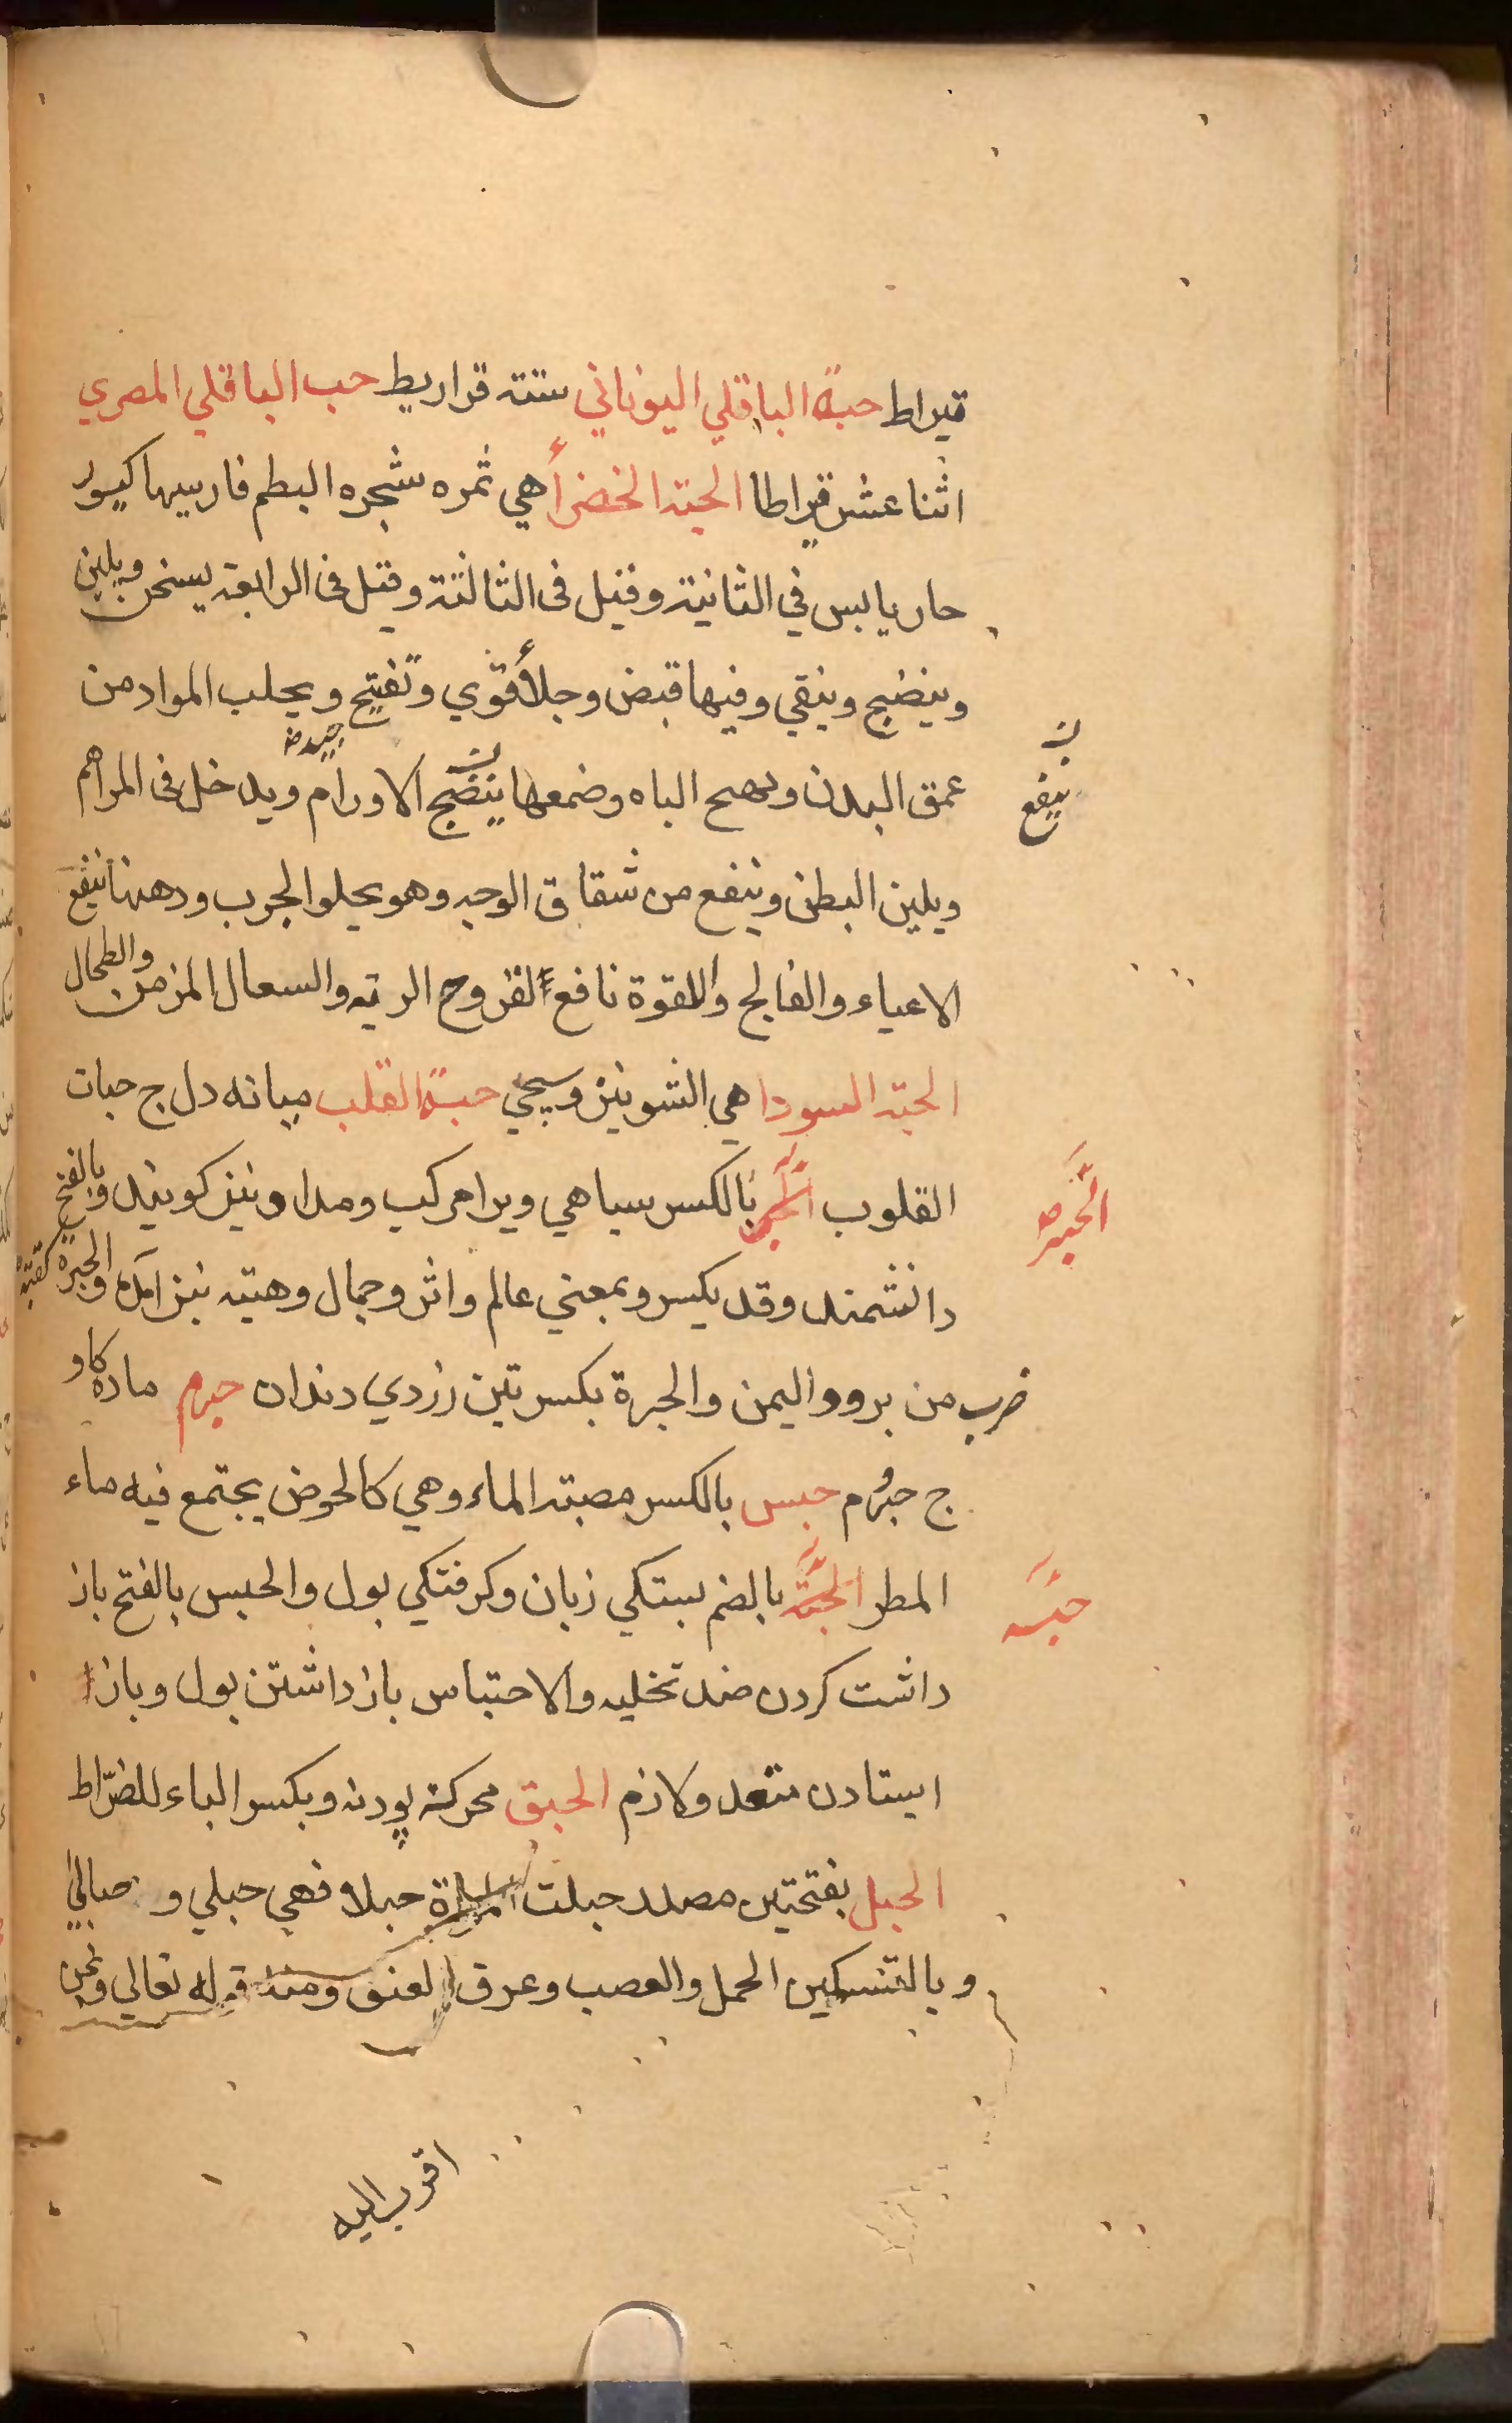 قيراط حبة الباقلي اليوناني ستة قراريط حب الباقلي المصري
اثنا عشر قيراطا الحبة الخضرأ هي ثمره شجره البطم فارسيها
حار يابس في الثانية وقيل فى الثالثة وقيل فى الرابعة يسخن ويلين
وينضج وينقي وفيها قبض وجلأ قوي وتفتيح ويجلب المواد من
عمق البدن ويهيج الباه وضمعها ينضج الاورام ويدخل فى المراهم
ينفع
ويلين البطن وينفع من شقاق الوجه وهو يجلو الجرب ودهنها ينفع
الاعياء والفالج واللقوة نافع لقروح الريه والسعال المزمن والطحال
الحبة السودا هي الشونيز وسيجئ حبة القلب ميانه دل ج حبات
القلوب الحبر بالكسر سياهي ويرا مركب ومداد نيز كويند وبالفتح
الحبر
دانشمند وقد يكسر وبمعني عالم واثر وجمال وهيئه نيز آمده والحبرة
ضرب من برود اليمن والحبرة بكسرتين زردي دندان حبرم ماده كاو
ج حبرم حبس بالكسر مصبة الماء وهي كالحوض يجتمع فيه ماء
المطر الحبسة بالضم بستكي زبان وكرفتكي بول والحبس بالفتح باز
حبسه
داشت كردن ضد تخليه والاحتباس باز داشتن بول وباز
ايستادن متعد ولازم الحبق محركة پودنه وبكسر الباء للضراط
الحبل بفتحتين مصدر حبلت المراة حبلا فهي حبلي و حبالي
وبالتسكين الحمل والعصب وعرق العنق ومنه قوله تعالي ونحن
اقرب اليه